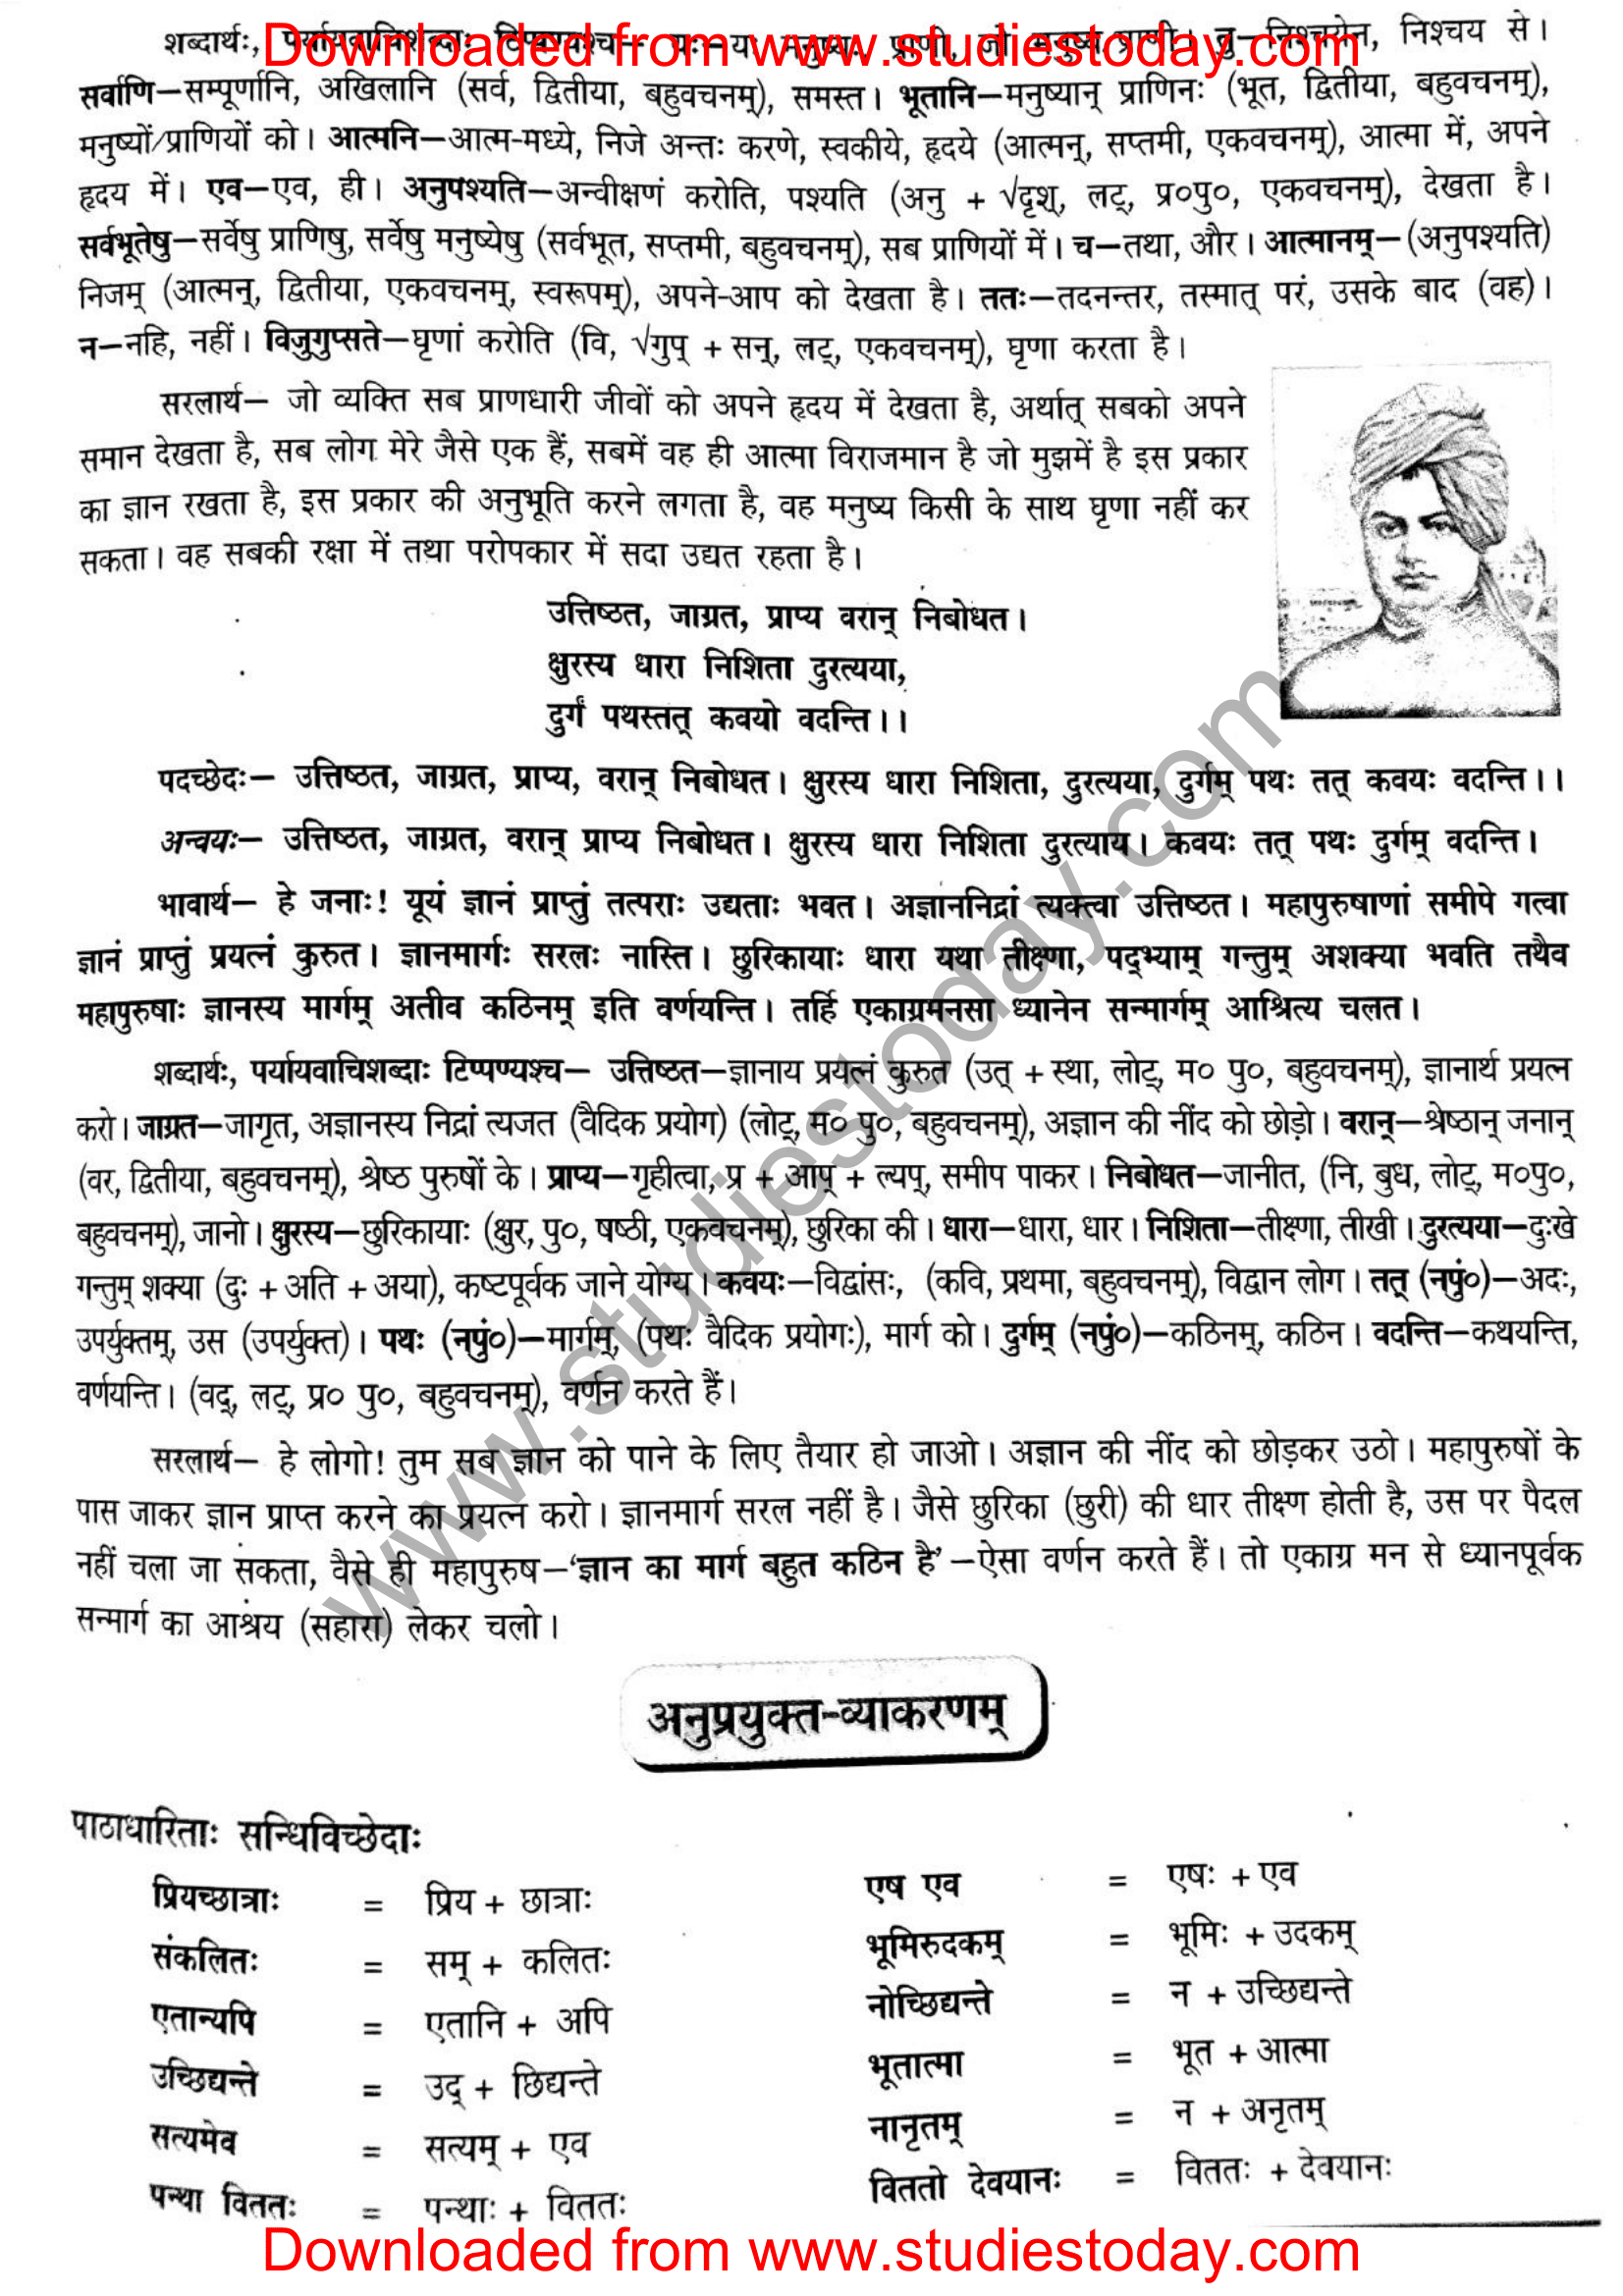 Downloaded from www.studiestoday.com
शब्दार्थः, पर्यायवाचिशब्दाः टिप्पण्यश्च— यः—यः मनुष्यः प्राणी, जो मनुष्य प्राणी। तु—निश्चयेन, निश्चय से।
सर्वाणि—सम्पूर्णानि, अखिलानि (सर्व, द्वितीया, बहुवचनम्), समस्त। भूतानि—मनुष्यान् प्राणिनः (भूत, द्वितीया, बहुवचनम्),
मनुष्यों/प्राणियों को। आत्मनि—आत्म-मध्ये, निजे अन्तः करणे, स्वकीये, हृदये (आत्मन्, सप्तमी, एकवचनम्), आत्मा में, अपने
हृदय में। एव—एव, ही। अनुपश्यति—अन्वीक्षणं करोति, पश्यति (अनु + √दृश्, लट्, प्र०पु०, एकवचनम्), देखता है।
सर्वभूतेषु—सर्वेषु प्राणिषु, सर्वेषु मनुष्येषु (सर्वभूत, सप्तमी, बहुवचनम्), सब प्राणियों में। च—तथा, और। आत्मानम्—(अनुपश्यति)
निजम् (आत्मन्, द्वितीया, एकवचनम्, स्वरूपम्), अपने-आप को देखता है। ततः—तदनन्तर, तस्मात् परं, उसके बाद (वह)।
न—नहि, नहीं। विजुगुप्सते—घृणां करोति (वि, √गुप् + सन्, लट्, एकवचनम्), घृणा करता है।
सरलार्थ— जो व्यक्ति सब प्राणधारी जीवों को अपने हृदय में देखता है, अर्थात् सबको अपने
समान देखता है, सब लोग मेरे जैसे एक हैं, सबमें वह ही आत्मा विराजमान है जो मुझमें है इस प्रकार
का ज्ञान रखता है, इस प्रकार की अनुभूति करने लगता है, वह मनुष्य किसी के साथ घृणा नहीं कर
सकता। वह सबकी रक्षा में तथा परोपकार में सदा उद्यत रहता है।
उत्तिष्ठत, जाग्रत, प्राप्य वरान् निबोधत।
क्षुरस्य धारा निशिता दुरत्यया,
दुर्गं पथस्तत् कवयो वदन्ति।।
पदच्छेदः— उत्तिष्ठत, जाग्रत, प्राप्य, वरान् निबोधत। क्षुरस्य धारा निशिता, दुरत्यया, दुर्गम् पथः तत् कवयः वदन्ति।।
अन्वयः— उत्तिष्ठत, जाग्रत, वरान् प्राप्य निबोधत। क्षुरस्य धारा निशिता दुरत्याय। कवयः तत् पथः दुर्गम् वदन्ति।
भावार्थ— हे जनाः! यूयं ज्ञानं प्राप्तुं तत्पराः उद्यताः भवत। अज्ञाननिद्रां त्यक्त्वा उत्तिष्ठत। महापुरुषाणां समीपे गत्वा
ज्ञानं प्राप्तुं प्रयत्नं कुरुत। ज्ञानमार्गः सरलः नास्ति। छुरिकायाः धारा यथा तीक्ष्णा, पद्भ्याम् गन्तुम् अशक्या भवति तथैव
महापुरुषाः ज्ञानस्य मार्गम् अतीव कठिनम् इति वर्णयन्ति। तर्हि एकाग्रमनसा ध्यानेन सन्मार्गम् आश्रित्य चलत।
शब्दार्थः, पर्यायवाचिशब्दाः टिप्पण्यश्च— उत्तिष्ठत—ज्ञानाय प्रयत्नं कुरुत (उत् + स्था, लोट्, म० पु०, बहुवचनम्), ज्ञानार्थ प्रयत्न
करो। जाग्रत—जागृत, अज्ञानस्य निद्रां त्यजत (वैदिक प्रयोग) (लोट्, म० पु०, बहुवचनम्), अज्ञान की नींद को छोड़ो। वरान्—श्रेष्ठान् जनान्
(वर, द्वितीया, बहुवचनम्), श्रेष्ठ पुरुषों के। प्राप्य—गृहीत्वा, प्र + आप् + ल्यप्, समीप पाकर। निबोधत—जानीत, (नि, बुध, लोट्, म०पु०,
बहुवचनम्), जानो। क्षुरस्य—छुरिकायाः (क्षुर, पु०, षष्ठी, एकवचनम्), छुरिका की। धारा—धारा, धार। निशिता—तीक्ष्णा, तीखी। दुरत्यया—दुःखे
गन्तुम् शक्या (दुः + अति + अया), कष्टपूर्वक जाने योग्य। कवयः—विद्वांसः, (कवि, प्रथमा, बहुवचनम्), विद्वान लोग। तत् (नपुं०)—अदः,
उपर्युक्तम्, उस (उपर्युक्त)। पथः (नपुं०)—मार्गम्, (पथः वैदिक प्रयोगः), मार्ग को। दुर्गम् (नपुं०)—कठिनम्, कठिन। वदन्ति—कथयन्ति,
वर्णयन्ति। (वद्, लट्, प्र० पु०, बहुवचनम्), वर्णन करते हैं।
सरलार्थ— हे लोगो! तुम सब ज्ञान को पाने के लिए तैयार हो जाओ। अज्ञान की नींद को छोड़कर उठो। महापुरुषों के
पास जाकर ज्ञान प्राप्त करने का प्रयत्न करो। ज्ञानमार्ग सरल नहीं है। जैसे छुरिका (छुरी) की धार तीक्ष्ण होती है, उस पर पैदल
नहीं चला जा सकता, वैसे ही महापुरुष—‘ज्ञान का मार्ग बहुत कठिन है’—ऐसा वर्णन करते हैं। तो एकाग्र मन से ध्यानपूर्वक
सन्मार्ग का आश्रय (सहारा) लेकर चलो।
www.studiestoday.com
अनुप्रयुक्त-व्याकरणम्
पाठाधारिताः सन्धिविच्छेदाः
प्रियच्छात्राः = प्रिय + छात्राः
संकलितः = सम् + कलितः
एतान्यपि = एतानि + अपि
उच्छिद्यन्ते = उद् + छिद्यन्ते
सत्यमेव = सत्यम् + एव
पन्था विततः = पन्थाः + विततः
एष एव = एषः + एव
भूमिरुदकम् = भूमिः + उदकम्
नोच्छिद्यन्ते = न + उच्छिद्यन्ते
भूतात्मा = भूत + आत्मा
नानृतम् = न + अनृतम्
विततो देवयानः = विततः + देवयानः
Downloaded from www.studiestoday.com